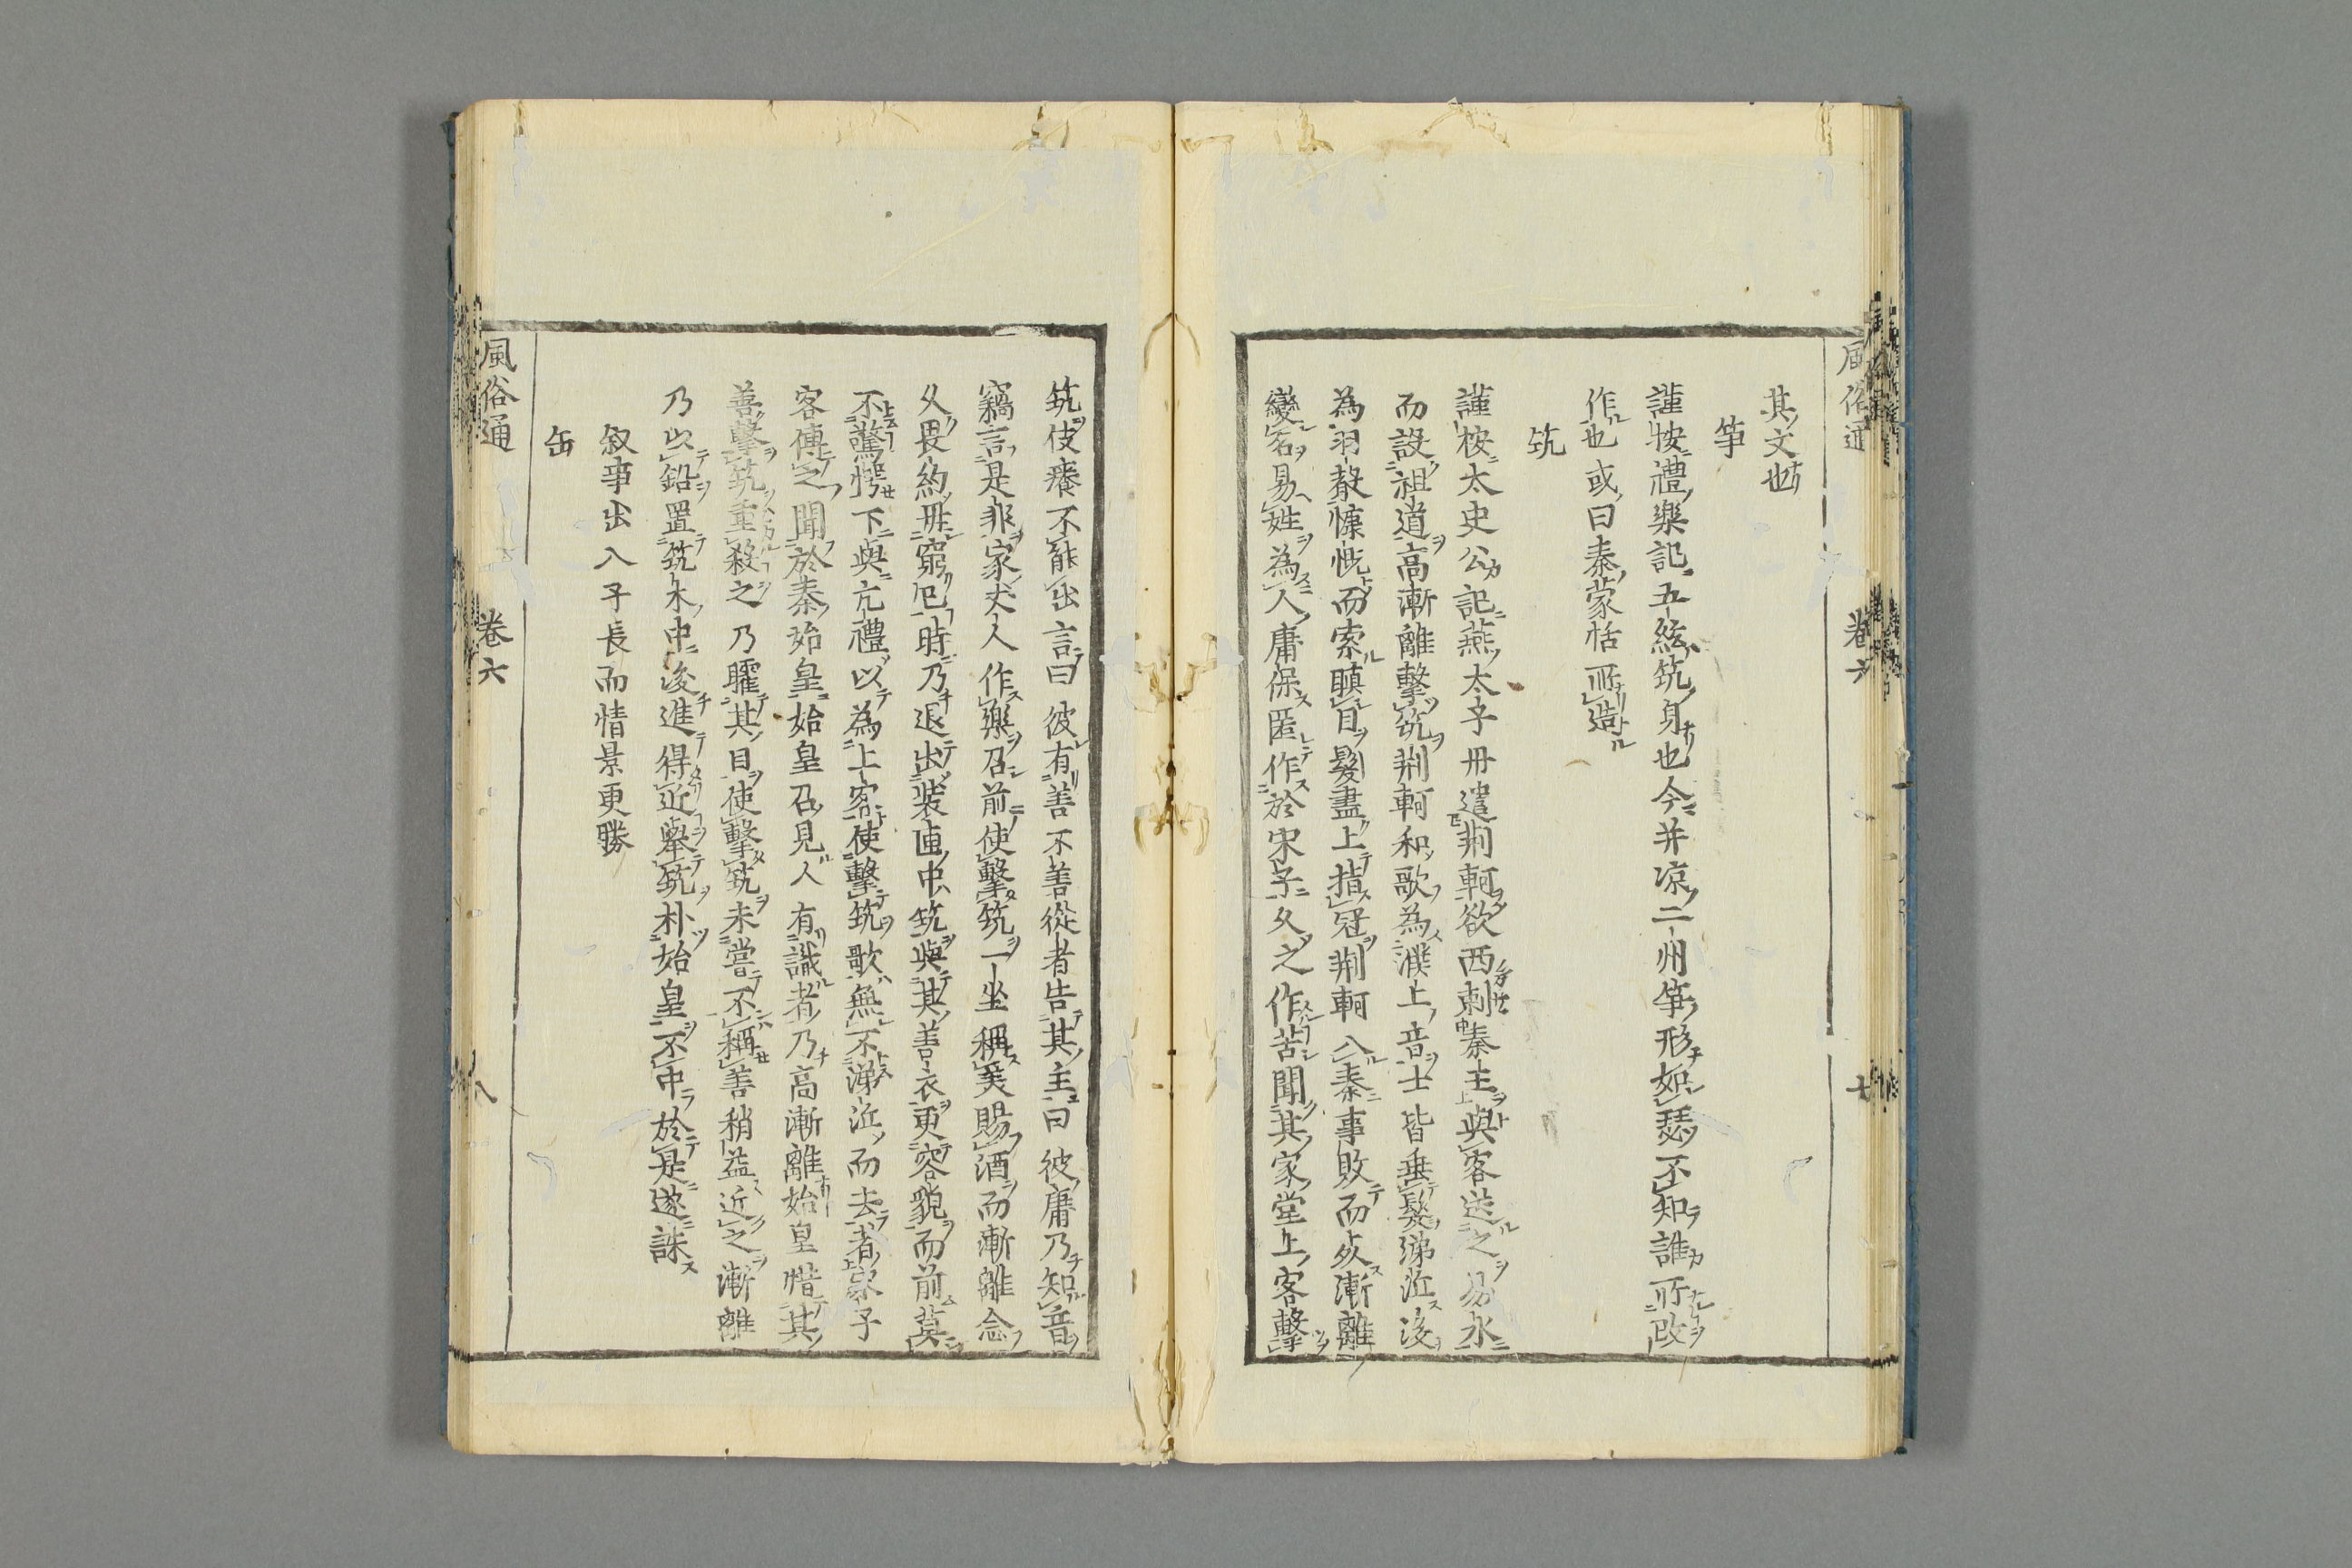 風俗通 卷六 十
其文也
筝
謹按禮樂記五絃筑身也今并涼二州筝形如瑟不知誰所改
作也或曰秦蒙恬所造
筑
謹按太史公記燕太子丹遣荆軻欲西刺秦王與客送之易水
而設祖道高漸離擊筑荆軻和歌為濮上音士皆垂髮涕泣後
為羽聲慷慨而索瞋目髮盡上指冠荆軻入秦事敗而死漸離
變名易姓為人庸保匿作於宋子久之作苦聞其家堂上客擊
筑伎癢不能出言曰彼有善不善從者告其主曰彼庸乃知音
竊言是非家丈人作樂召前使擊筑一坐稱美賜酒而漸離念
久畏約毋窮已時乃退出裝匣中筑與其善衣更容貌而前莫
不驚愕下與亢禮以為上客使擊筑歌無不涕泣而去者宋子
客傳之聞於秦始皇始皇召見人有識者乃高漸離始皇惜其
善擊筑重殺之乃矐其目使擊筑未嘗不稱善稍益近之漸離
乃以鉛置筑木中後進得近舉筑朴始皇不中於是遂誅
叙事出入子長而情景更勝
缶
風俗通 卷六 八